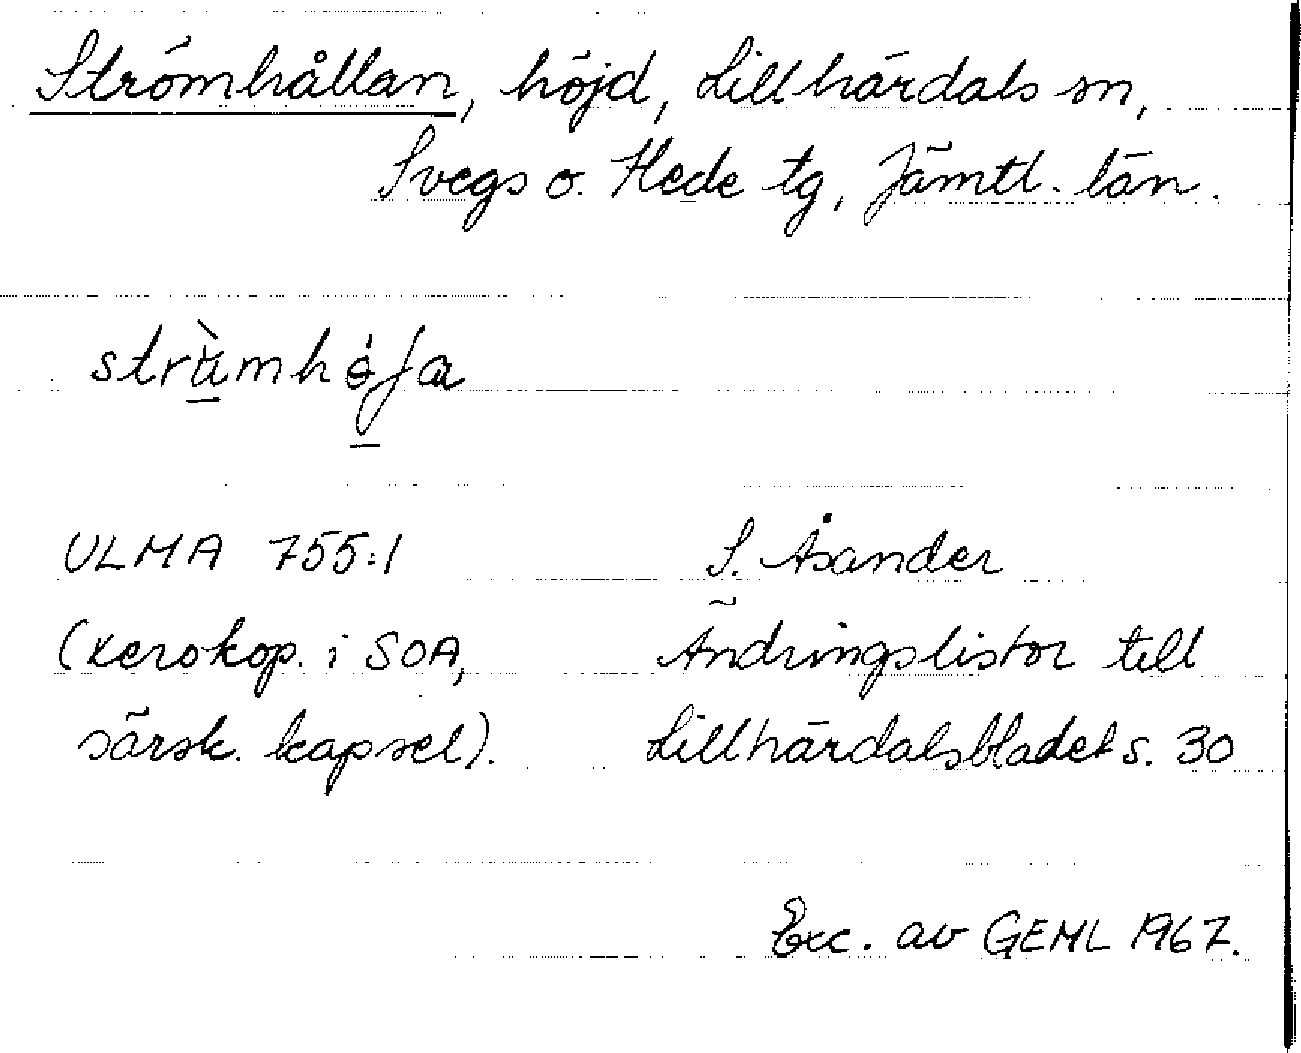 Strömhållan, höjd, Lillhärdals sn,
Svegs o. Hede tg, Jämtl. län.
ULMA 755:1
S. Åsander
(xerokop. i SOA,
Ändringslistor till
särsk. kapsel).
Lillhärdalsbladet s. 30
Exc. av GEML 1967.